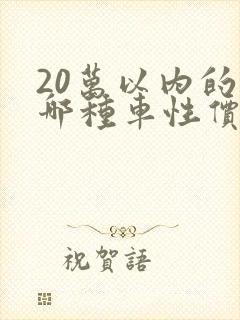 20萬以內的
哪種車性價
祝賀語